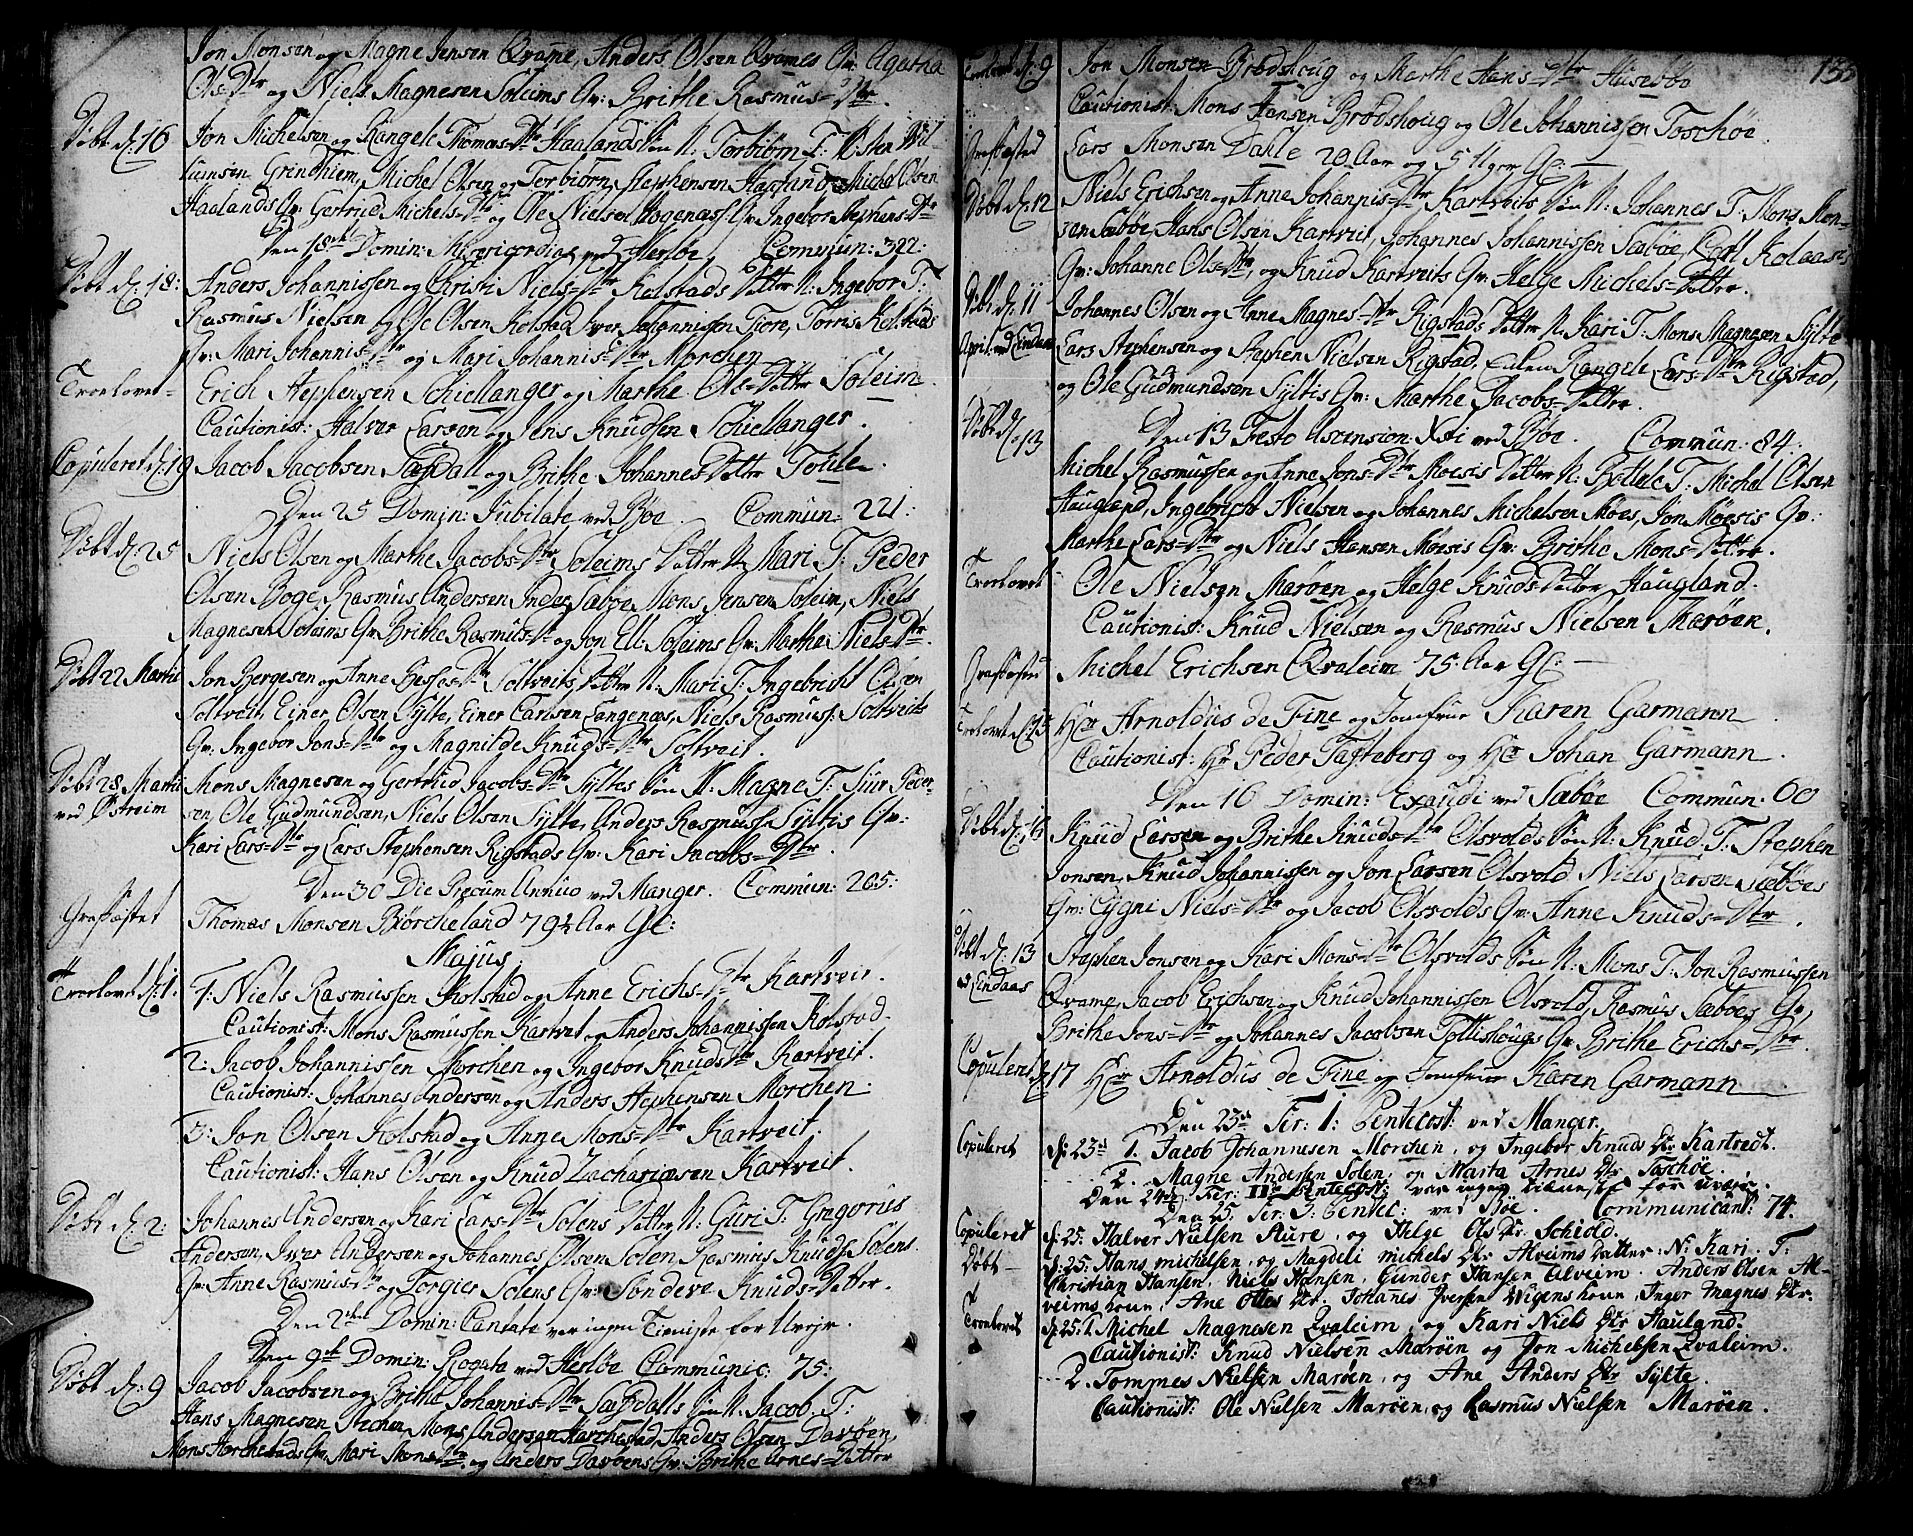 Jon Monsen og Magne Jensen Qvame, Anders Olsen Qvames Qv: Agatha
Ols=Dtr og Niels Magnesen Soleims Qv: Brithe Rasmus=Dtr.
Døbt d: 16 Jon Michelsen og Rangele Thomas=Dtr Haalands Søn N. Torbiørn T:
Grindhiem, Michel Olsen og Torbiørn Stephensen Haaland, Michel Olsen
Haalands Qv: Gertrud Michels=Dtr og Ole Nielsen Qv: Ingebor Stephens=Dtr
Den 18de Domin: Misericordias ved Herløe Commun: 322:
Døbt d: 18: Anders Johannissen og Christi Niels=Dtr Kolstads Datter N: Ingebor T:
Rasmus Nielsen og Ole Olsen Kolstad, Iver Johannissen Fiore, Torris Kolstads
Qv: Mari Johannis=Dtr og Mari Johannis=Dtr Morchen
Troelovet Erich Stephensen Schiellanger og Marthe Ols=Datter Soleim.
Cautionist: Halvor Larsen og Jens Knudsen Schiellanger.
Copuleret d: 19 Jacob Jacobsen og Brithe Johannes Datter
Den 25 Domin: Jubilate ved Bøe. Commun: 221:
Døbt d: 25 Niels Olsen og Marthe Jacobs=Dtr Soleims Datter N. Mari T: Peder
Olsen Boge, Rasmus Andersen Inder Sæbøe, Mons Jensen Soleim, Niels
Magnesen Soleims Qv: Brithe Rasmus=Dtr og Jon Ell: Soleims Qv: Marthe Niels=Dtr.
Døbt 22 Martii Jon Bergesen og Anne Dtr Soltveits Datter N. Mari T: Ingebricht Olsen
Soltveit, Einer Olsen Sylte, Einer Carlsen Langenæs, Niels Rasmuss: Soltveits
Qv: Ingebor Jons=Dtr og Magnilde Knuds=Dtr Soltveit.
Døbt 28 Martii ved Østreim Mons Magnesen og Gertrud Jacobs=Dtr Syltes Søn N: Magne T: Siur Peder-
sen, Ole Gudmundsen, Niels Olsen Sylte, Anders Rasmussen Syltis Qv:
Kari Lars=Dtr og Lars Stephensen Rigstads Qv: Kari Jacobs=Dtr.
Den 30 Die Precum Annuo ved Manger. Commun: 205:
Grafæstet Thomas Monsen Biørcheland 79½ Aar Gl:
Majus.
Troelovet d: 1. 1: Niels Rasmussen Kolstad og Anne Erichs=Dtr Kartveit.
Cautionist: Mons Rasmussen Kartvet og Anders Johannissen Kolstad.
2: Jacob Johannissen Morchen og Ingebor Knuds Dtr Kartveit.
Cautionist: Johannes Andersen og Anders Stephensen Morchen:
3: Jon Olsen Kolstad og Anne Mons=Dtr Kartveit.
Cautionist: Hans Olsen og Knud Zachariæsen Kartveit.
Døbt d: 2: Johannes Andersen og Kari Lars=Dtr Solens Datter N: Guri T: Gregorius
Andersen, Iver Andersen og Johannes Olsen Solen, Rasmus Knuds. Solens
Qv: Anne Rasmus=Dtr og Torgier Solens Qv: Sondeve Knuds=Datter.
Den 2den Domin: Cantate var ingen Tieniste for Uvejr.
Den 9de Domin: Rogate ved Herløe Communic: 75:
Døbt d: 9 Jacob Jacobsen og Brithe Johannis=Dtr Søn N. Jacob T:
Hans Magnesen Mons Andersen Harchestad, Anders Olsen Davøen,
Mons Harchestads Qv: Mari Mons=Dtr og Anders Davøens Qv: Brithe Arnes=Datter
133
Troelovet d: 9 Jon Monsen Brødshoug og Marthe Hans=Dtr Husebøe
Cautionist: Mons Hansen Brødshoug og Ole Johannissen Toschøe.
Grafæsted Lars Monsen Dahle 20 Aar og 5 Uger Gl: —
Døbt d: 12 Niels Erichsen og Anne Johannis=Dtr Kartveits Søn N: Johannes T: Mons Mon-
sen Sæbøe, Hans Olsen Kartveit, Johannes Johannissen Sæbøe, Carl Kolaases
Qv: Johanne Ols=Dtr, og Knud Kartveits Qv: Helge Michels=Datter.
Døbt d: 11 April: ved Lindaas Johannes Olsen og Anne Magnes=Dtr Rigstads Datter N. Kari T: Mons Magnesen Sylte
Lars Stephensen og Stephen Nielsen Rigstad, Rangele Lars=Dtr Rigstad,
og Ole Gudmundsen Syltis Qv: Marthe Jacobs=Datter.
Den 13 Festo Ascension: Xsti ved Bøe. Commun: 84:
Døbt d: 13 Michel Rasmussen og Anne Jons=Dtr Moesis Datter N: Botlele T: Michel Olsen
Haugland, Ingebricht Nielsen og Johannes Michelsen Moes, Jon Møesis Qv:
Marthe Lars=Dtr og Niels Hansen Møesis Qv: Brithe Mons=Datter.
Troelovet Ole Nielsen Marøen og Helge Knuds=Datter Haugland.
Cautionist: Knud Nielsen og Rasmus Nielsen Marøen.
Grafæstet Michel Erichsen Qvaleim 75: Aar Gl: —
Troelovet d: 15 Hr Arnoldus de Fine og Jomfrue Karen Garmann
Cautionist: Hr Peder Tagteberg og Hr Johan Garmann.
Den 16 Domin: Exaudi ved Sæbøe Commun: 60
Døbt d: 16 Knud Larsen og Brithe Knuds=Dtr Olsvolds Søn N: Knud. T: Stephen
Jonsen, Knud Johannissen og Jon Larsen Olsvold, Niels Larsen Sæbøes
Qv: Cygni Niels=Dtr og Jacob Olsvolds Qv: Anne Knuds=Dtr
Døbt d: 13 ved Lindaas Stephen Jonsen og Kari Mons=Dtr Olsvolds Søn N: Mons T: Jon Rasmussen
Qvame, Jacob Erichsen og Knud Johannissen Olsvold, Rasmus Sæbøes Qv:
Brithe Jons=Dtr og Johannes Jacobsen Tollishougs Qv: Brithe Erichs=Dtr
Copuleret d: 17 Hr Arnoldus de Fine og Jomfrue Karen Garmann
Den 23de Fer: 1: Pentecost: ved Manger.
Copuleret d: 23de 1. Jacob Johannesen Morchen, og Ingebor Knuds Dtr Kartvedt.
2. Magne Andersen Solen, og Marta Arnes Dtr Taschøe.
Den 24de Fer: II Pentecost: var ingen tieneste for uveir.
Den 25. Fer: 3: Pentec: ved Bøe. Communicant: 74.
Copuleret d: 25: Halver Nielsen Sture, og Helge Ols Dr. Schiold.
Døbt d: 25: Hans Michelsen, og Magdeli Michels Dtr Alveims Datter: N: Kari. T:
Christian Hansen, Niels Hansen, Gunder Hansen Alveim. Anders Olsen Al-
veims koun, Ane Ottes Dtr. Johannes Iversen Vigens koun, Inger Magnes Dtr.
Troelovet d: 25: 1. Michel Magnesen Qvaleim, og Kari Niels Dtr Hauland.
Cautionist: Knud Nielsen Marøen og Jon Michelsen Qvaleim.
2. Tommes Nielsen Marøen, og Ane Anders Dtr Sylte.
Cautionist: Ole Nielsen Marøen, og Rasmus Nielsen Marøen.